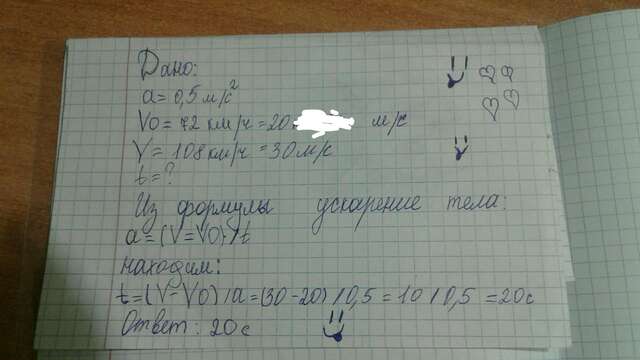 Дано:
a = 0,5 м/с²
V0 = 72 км/ч = 20 м/с
V = 108 км/ч = 30 м/с
t = ?
Из формулы ускарение тела:
a = (V = V0) / t
находим:
t = (V - V0) / a = (30 - 20) / 0,5 = 10 / 0,5 = 20 с
Ответ: 20 с